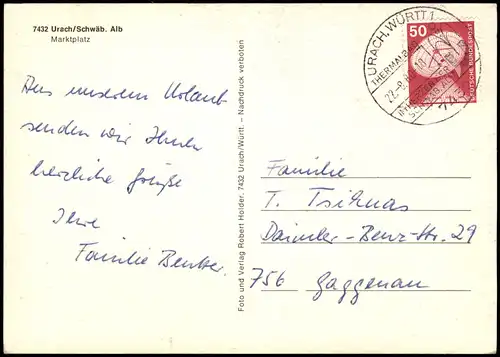 7432 Urach/Schwäb. Alb
Marktplatz
Aus unserem Urlaub
senden wir Ihnen
herzliche Grüße
Ihre
Familie
Foto und Verlag Robert Holder, 7432 Urach/Württ. – Nachdruck verboten
URACH, WÜRTT 1
THERMALBAD
50
DEUTSCHE BUNDESPOST
Familie
T. Tsiknas
Daimler-Benz-Str. 29
756 Gaggenau